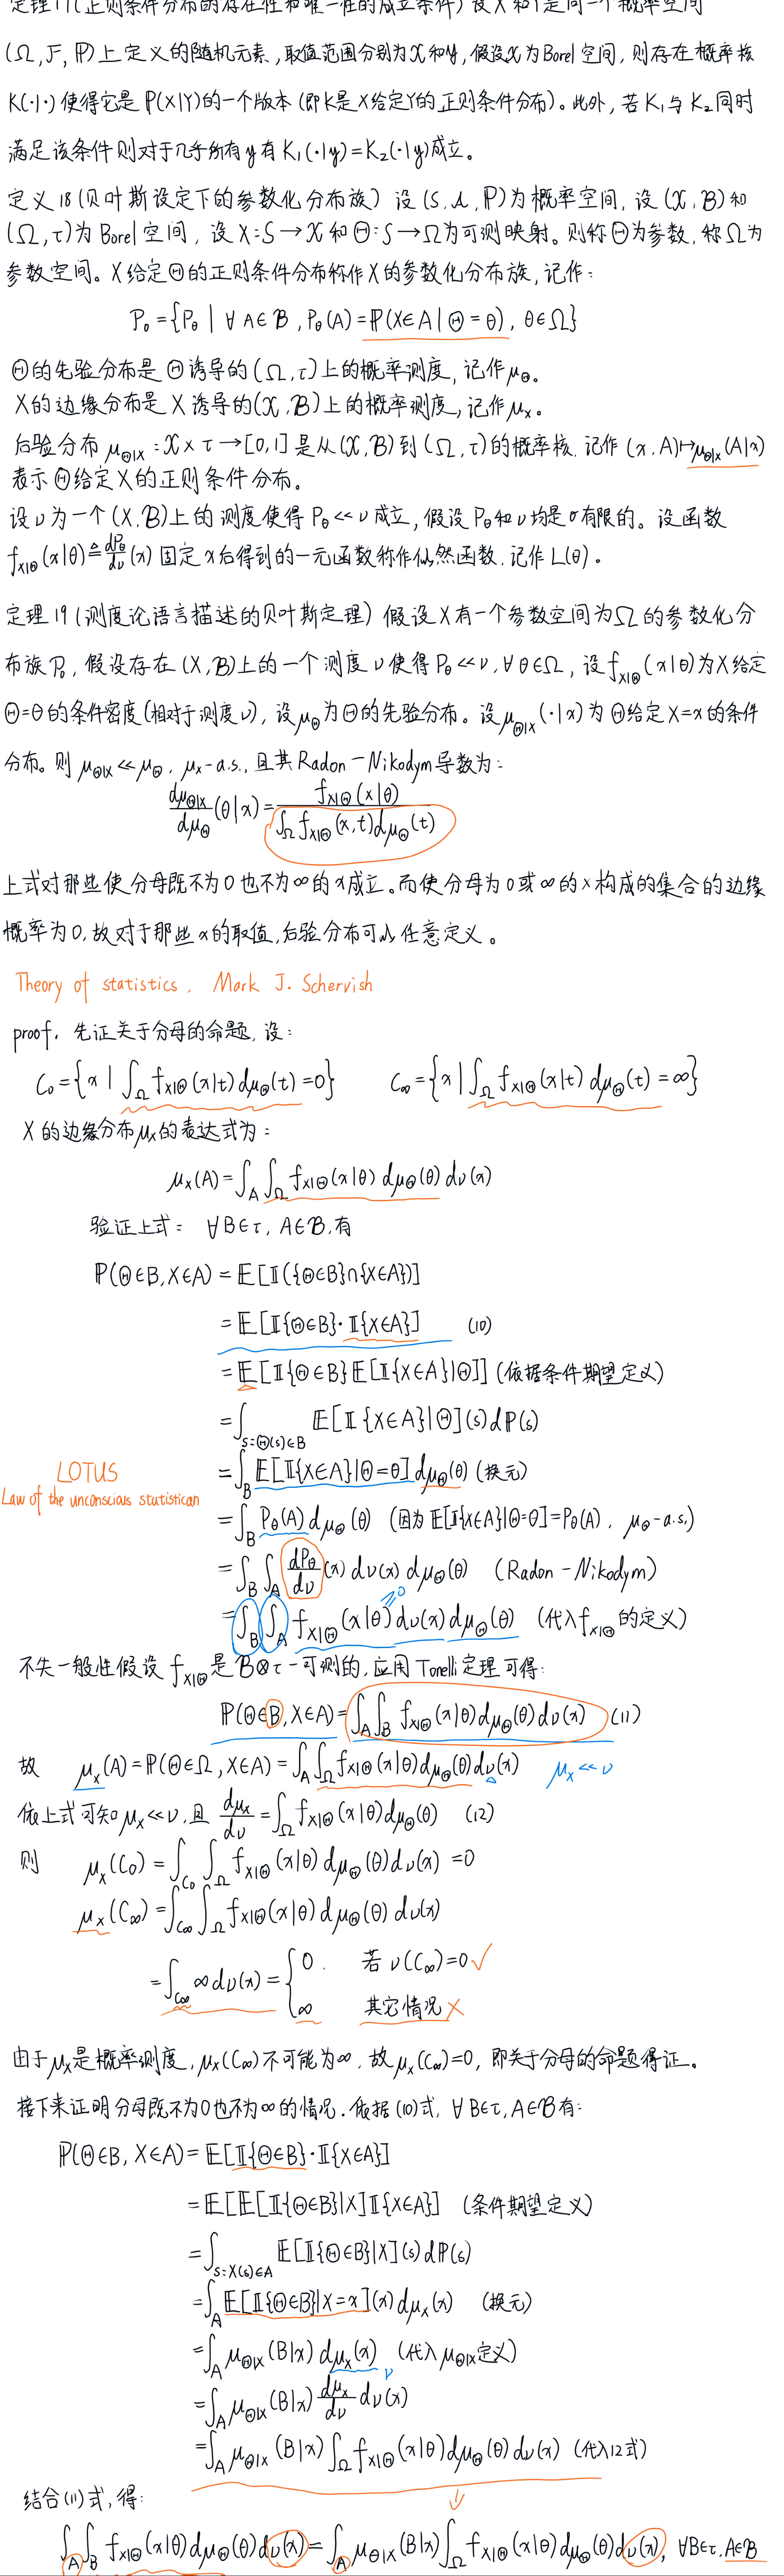 定理17(正则条件分布的存在性和唯一性的成立条件) 设X和Y是同一个概率空间
(Ω, F, ℙ)上定义的随机元素,取值范围分别为𝒳和𝒴,假设𝒳为Borel空间,则存在概率核
K(·|·)使得它是ℙ(X|Y)的一个版本(即K是X给定Y的正则条件分布)。此外,若K₁与K₂同时
满足该条件则对于几乎所有y有K₁(·|y)=K₂(·|y)成立。
定义18(贝叶斯设定下的参数化分布族) 设(S, 𝒜, ℙ)为概率空间,设(𝒳, ℬ)和
(Ω, τ)为Borel空间,设X:S→𝒳和Θ:S→Ω为可测映射。则称Θ为参数,称Ω为
参数空间。X给定Θ的正则条件分布称作X的参数化分布族,记作:
P₀={P_θ | ∀A∈ℬ, P_θ(A)=ℙ(X∈A|Θ=θ), θ∈Ω}
Θ的先验分布是Θ诱导的(Ω, τ)上的概率测度,记作μ_Θ。
X的边缘分布是X诱导的(𝒳, ℬ)上的概率测度,记作μ_X。
后验分布μ_{Θ|X}:𝒳×τ→[0,1]是从(𝒳, ℬ)到(Ω, τ)的概率核,记作(x, A)↦μ_{Θ|X}(A|x)
表示Θ给定X的正则条件分布。
设ν为一个(X, ℬ)上的测度使得P_θ≪ν成立,假设P_θ和ν均是σ有限的。设函数
f_{X|Θ}(x|θ)≜dP_θ/dν(x)固定x后得到的一元函数称作似然函数,记作L(θ)。
定理19(测度论语言描述的贝叶斯定理) 假设X有一个参数空间为Ω的参数化分
布族P₀,假设存在(X, ℬ)上的一个测度ν使得P_θ≪ν, ∀θ∈Ω,设f_{X|Θ}(x|θ)为X给定
Θ=θ的条件密度(相对于测度ν),设μ_Θ为Θ的先验分布。设μ_{Θ|X}(·|x)为Θ给定X=x的条件
分布。则μ_{Θ|X}≪μ_Θ, μ_X-a.s.,且其Radon-Nikodym导数为:
dμ_{Θ|X}/dμ_Θ(θ|x)=f_{X|Θ}(x|θ)/∫_Ω f_{X|Θ}(x,t)dμ_Θ(t)
上式对那些使分母既不为0也不为∞的x成立。而使分母为0或∞的x构成的集合的边缘
概率为0,故对于那些x的取值,后验分布可以任意定义。
Theory of statistics, Mark J. Schervish
proof. 先证关于分母的命题,设:
C₀={x|∫_Ω f_{X|Θ}(x|t)dμ_Θ(t)=0} C_∞={x|∫_Ω f_{X|Θ}(x|t)dμ_Θ(t)=∞}
X的边缘分布μ_X的表达式为:
μ_X(A)=∫_A∫_Ω f_{X|Θ}(x|θ)dμ_Θ(θ)dν(x)
验证上式: ∀B∈τ, A∈ℬ,有
ℙ(Θ∈B, X∈A)=𝔼[𝕀({Θ∈B}∩{X∈A})]
=𝔼[𝕀{Θ∈B}·𝕀{X∈A}] (10)
=𝔼[𝕀{Θ∈B}𝔼[𝕀{X∈A}|Θ]] (依据条件期望定义)
=∫_{s=Θ(s)∈B} 𝔼[𝕀{X∈A}|Θ](s)dℙ(s)
LOTUS
Law of the unconscious statistican
=∫_B 𝔼[𝕀{X∈A}|Θ=θ]dμ_Θ(θ) (换元)
=∫_B P_θ(A)dμ_Θ(θ) (因为𝔼[𝕀{X∈A}|Θ=θ]=P_θ(A), μ_Θ-a.s.)
=∫_B∫_A dP_θ/dν(x)dν(x)dμ_Θ(θ) (Radon-Nikodym)
≥0
=∫_B∫_A f_{X|Θ}(x|θ)dν(x)dμ_Θ(θ) (代入f_{X|Θ}的定义)
不失一般性假设f_{X|Θ}是ℬ⊗τ-可测的,应用Tonelli定理可得:
ℙ(Θ∈B, X∈A)=∫_A∫_B f_{X|Θ}(x|θ)dμ_Θ(θ)dν(x) (11)
故 μ_X(A)=ℙ(Θ∈Ω, X∈A)=∫_A∫_Ω f_{X|Θ}(x|θ)dμ_Θ(θ)dν(x) μ_X≪ν
依上式可知μ_X≪ν,且 dμ_X/dν=∫_Ω f_{X|Θ}(x|θ)dμ_Θ(θ) (12)
则 μ_X(C₀)=∫_{C₀}∫_Ω f_{X|Θ}(x|θ)dμ_Θ(θ)dν(x)=0
μ_X(C_∞)=∫_{C_∞}∫_Ω f_{X|Θ}(x|θ)dμ_Θ(θ)dν(x)
=∫_{C_∞}∞dν(x)={0, 若ν(C_∞)=0 ✓
∞ 其它情况 ×
由于μ_X是概率测度,μ_X(C_∞)不可能为∞,故μ_X(C_∞)=0,即关于分母的命题得证。
接下来证明分母既不为0也不为∞的情况.依据(10)式,∀B∈τ, A∈ℬ有:
ℙ(Θ∈B, X∈A)=𝔼[𝕀{Θ∈B}·𝕀{X∈A}]
=𝔼[𝔼[𝕀{Θ∈B}|X]𝕀{X∈A}] (条件期望定义)
=∫_{s=X(s)∈A} 𝔼[𝕀{Θ∈B}|X](s)dℙ(s)
=∫_A 𝔼[𝕀{Θ∈B}|X=x](x)dμ_X(x) (换元)
=∫_A μ_{Θ|X}(B|x)dμ_X(x) (代入μ_{Θ|X}定义)
ν
=∫_A μ_{Θ|X}(B|x)dμ_X/dν dν(x)
=∫_A μ_{Θ|X}(B|x)∫_Ω f_{X|Θ}(x|θ)dμ_Θ(θ)dν(x) (代入12式)
结合(11)式,得:
∫_A∫_B f_{X|Θ}(x|θ)dμ_Θ(θ)dν(x)=∫_A μ_{Θ|X}(B|x)∫_Ω f_{X|Θ}(x|θ)dμ_Θ(θ)dν(x), ∀B∈τ, A∈ℬ